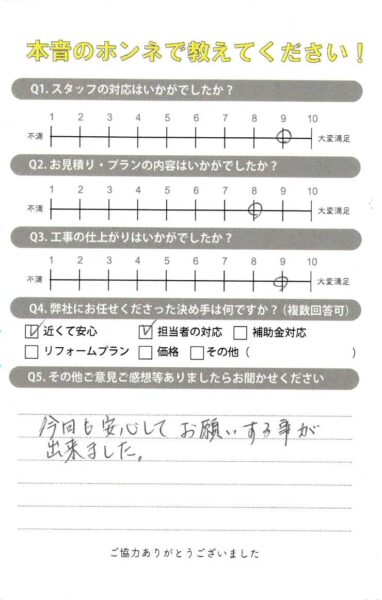 本音のホンネで教えてください！
Q1. スタッフの対応はいかがでしたか？
1 2 3 4 5 6 7 8 9 10
不満 大変満足
Q2. お見積り・プランの内容はいかがでしたか？
1 2 3 4 5 6 7 8 9 10
不満 大変満足
Q3. 工事の仕上がりはいかがでしたか？
1 2 3 4 5 6 7 8 9 10
不満 大変満足
Q4. 弊社にお任せくださった決め手は何ですか？（複数回答可）
近くて安心 担当者の対応 補助金対応
リフォームプラン 価格 その他（ ）
Q5. その他ご意見ご感想等ありましたらお聞かせください
今回も安心してお願いする事が
出来ました。
ご協力ありがとうございました